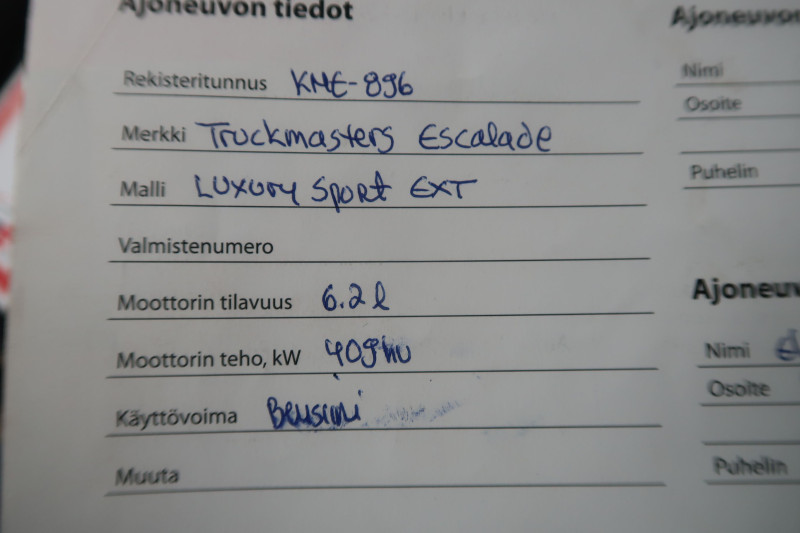 Ajoneuvon tiedot
Rekisteritunnus KME-896
Merkki Truckmasters Escalade
Malli Luxury Sport EXT
Valmistenumero
Moottorin tilavuus 6.2 l
Moottorin teho, kW 409 hv
Käyttövoima Bensiini
Muuta
Ajoneuvon
Nimi
Osoite
Puhelin
Ajoneuv
Nimi
Osoite
Puhelin